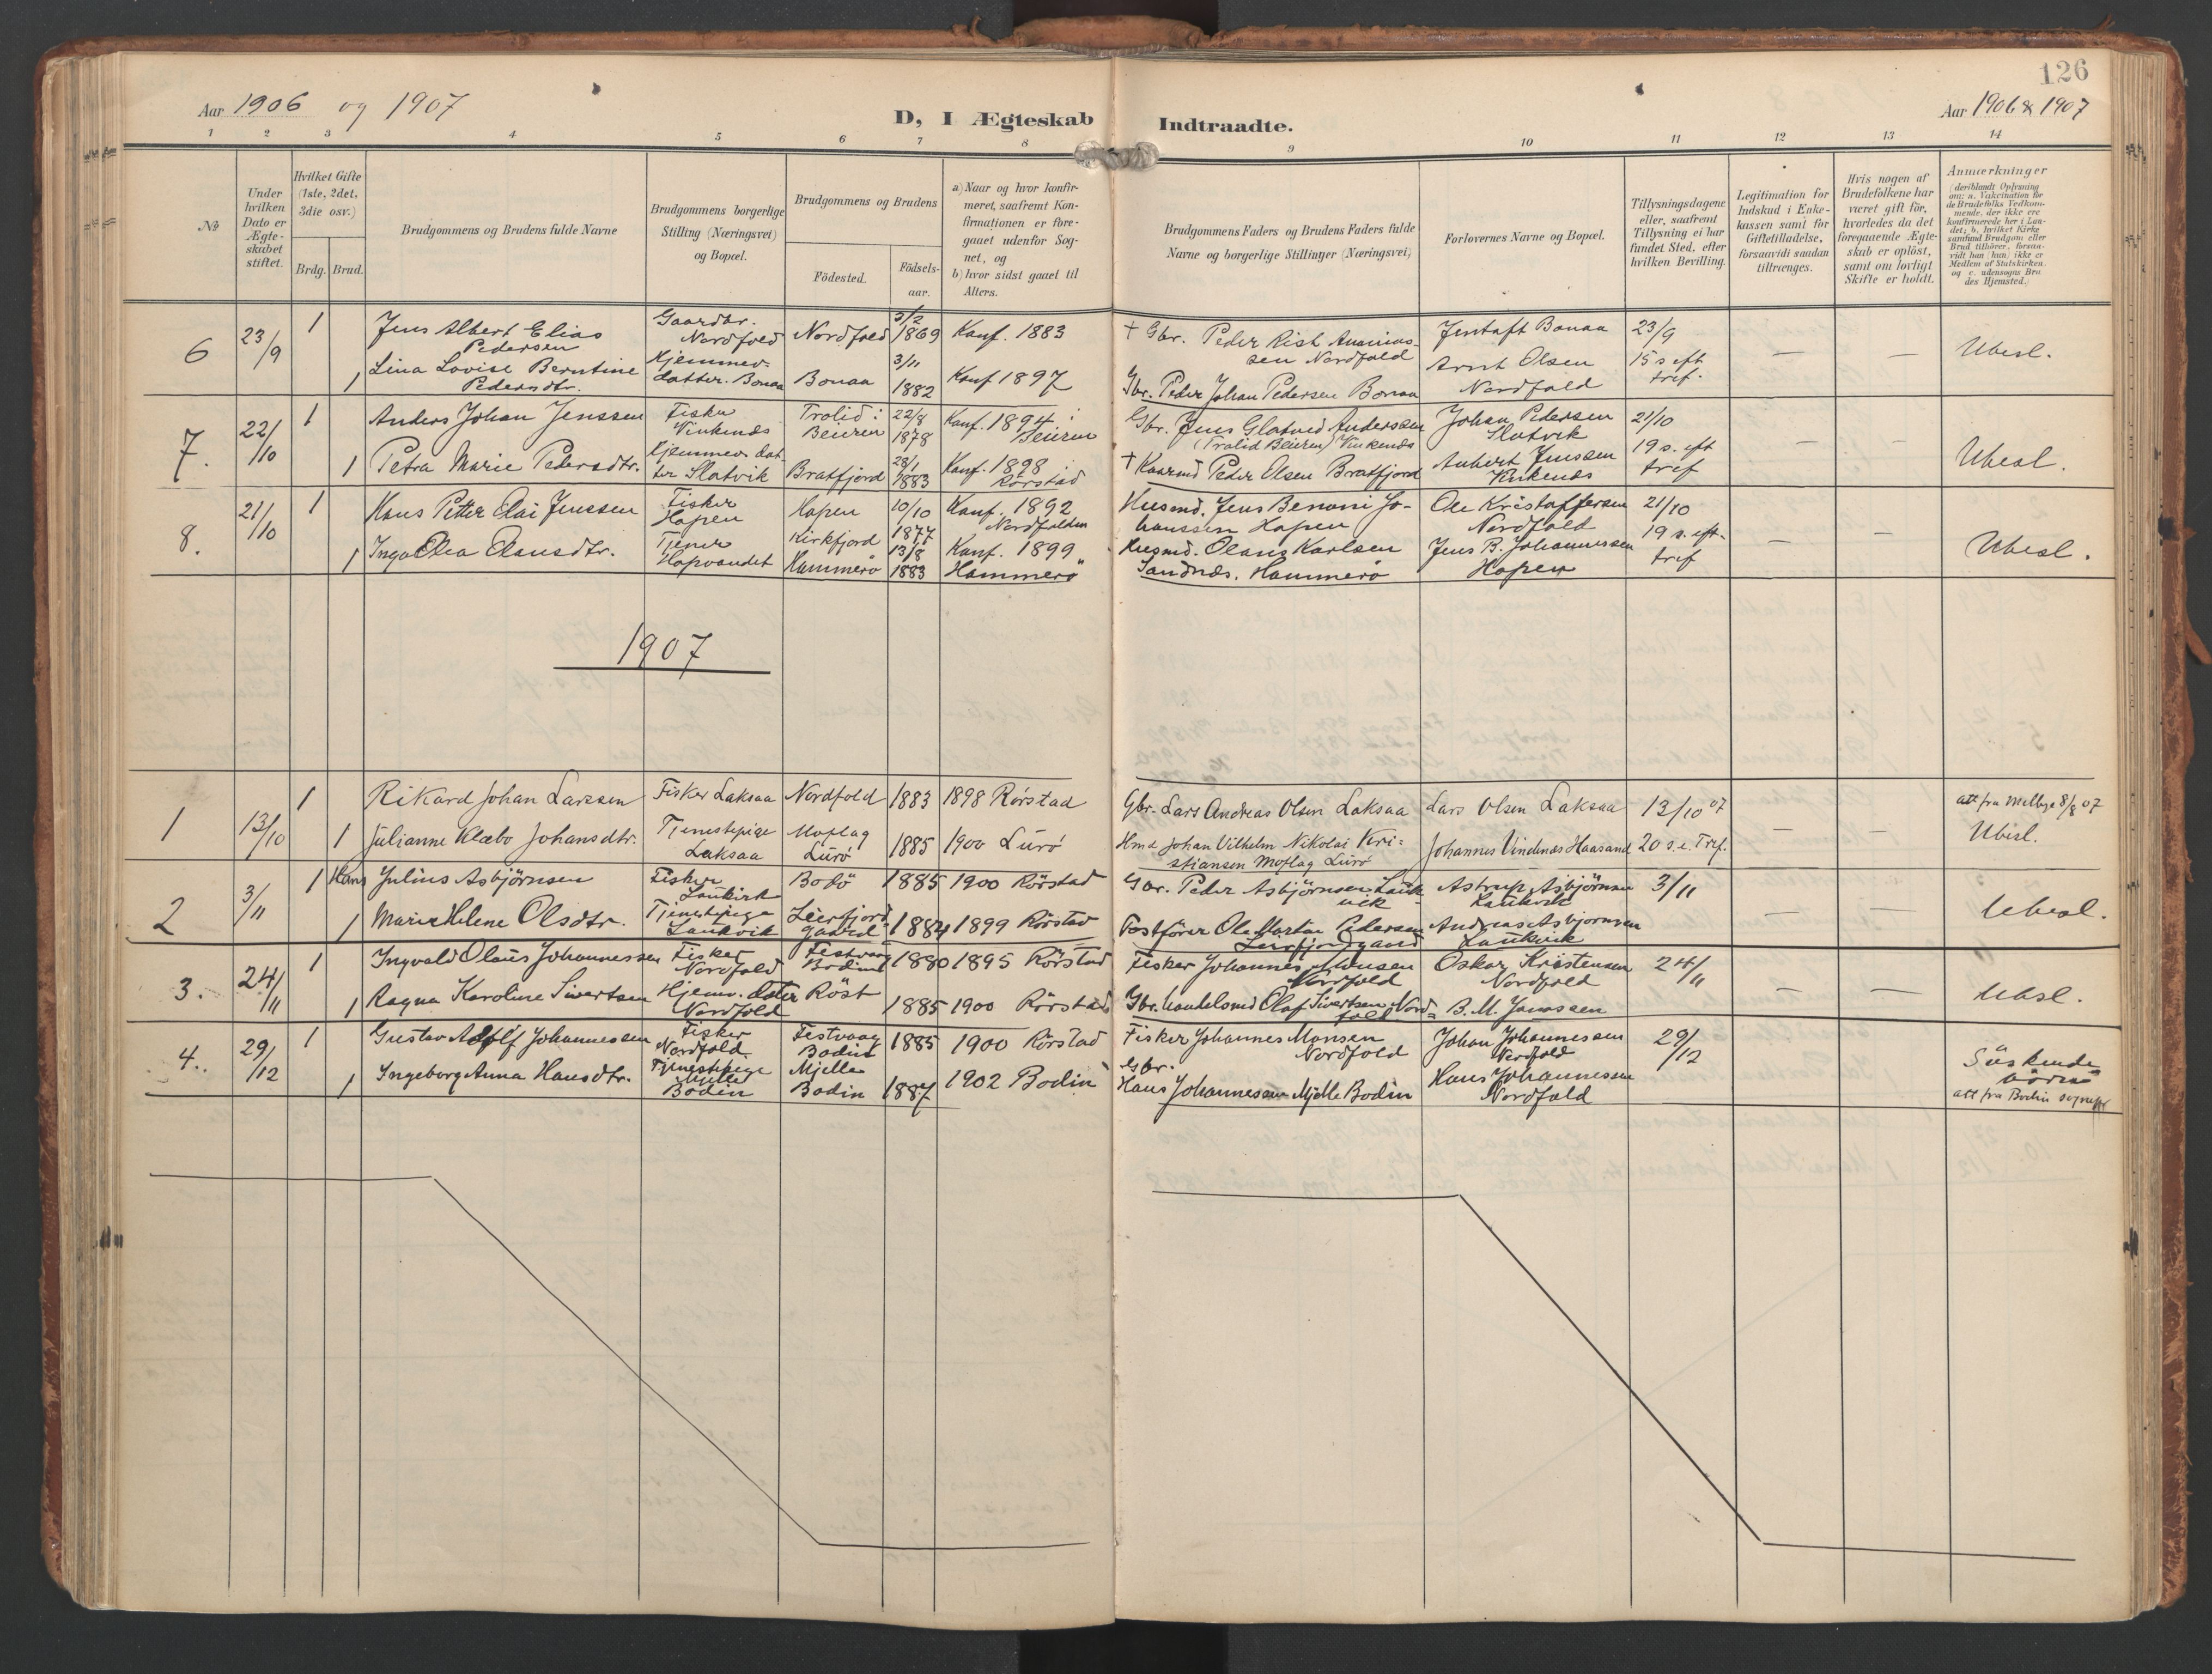 126
Aar 1906 og 1907
D, I Ægteskab Indtraadte.
Aar 1906 & 1907
1 2 3 4 5 6 7 8 9 10 11 12 13 14
№
Under hvilken Dato er Ægteskabet stiftet.
Hvilket Gifte (1ste, 2det, 3die osv.)
Brdg. Brud.
Brudgommens og Brudens fulde Navne
Brudgommens borgerlige Stilling (Næringsvei) og Bopæl.
Brudgommens og Brudens
Födested.
Födsels-aar.
a) Naar og hvor konfirmeret, saafremt Konfirmationen er foregaaet udenfor Sognet, og
b) hvor sidst gaaet til Alters.
Brudgommens Faders og Brudens Faders fulde Navne og borgerlige Stillinger (Næringsvei)
Forlovernes Navne og Bopæl.
Tillysningsdagene eller, saafremt Tillysning ei har fundet Sted, efter hvilken Bevilling.
Legitimation for Indskud i Enkekassen samt for Giftetilladelse, forsaavidt saadan tiltrænges.
Hvis nogen af Brudefolkene har været gift för, hvorledes da det foregaaende Ægteskab er oplöst, samt om lovligt Skifte er holdt.
Anmerkninger
(deriblandt Oplysning om: a. Vakcination for de Brudefolks Vedkommende, der ikke ere konfirmerede her i Landet; b. hvilket Kirkesamfund Brudgom eller Brud tilhörer, forsaavidt han (hun) ikke er Medlem af Statskirken. og c. udensogns Brudes Hjemsted.)
6 23/9 1 Jens Albert Elias Pedersen Gaardbr. Nordfold Nordfold 3/2 1869 Konf. 1883 † Gbr. Peder Rist Ananiassen Nordfold Jentoft Bonaa 23/9 — — Ubesl.
1 Lina Lovise Berntine Pedersdtr. Hjemmevdatter. Bonaa Bonaa 3/11 1882 Konf 1897 Gbr. Peder Johan Pedersen Bonaa Arnt Olsen Nordfold 15 s eft tref.
7. 22/10 1 Anders Johan Jenssen Fisker Vinkenes Trolid i Beieren 22/8 1878 Konf. 1894 i Beieren Gbr. Jens Glatved Anderssen (Trolid Beieren) Vinkenes Johan Pedersen Slotvik 21/10 — — Ubesl.
1 Petra Marie Pedersdtr. Hjemmev datter Slotvik Bratfjord 28/1 1883 Konf. 1898 Rörstad † Kaarmd Peder Olsen Bratfjord Anbert Jenssen Vinkenes 19 s. eft tref
8. 21/10 1 Hans Petter Elai Jenssen Fisker Hopen Hopen 10/10 1877 Konf. 1892 Nordfolden Husmd. Jens Benoni Johanssen Hopen Ole Kristoffersen Nordfold 21/10 — — Ubesl.
1 Inga Olea Olausdtr. Tjener Hopvandet Kirkfjord Hammerö 13/8 1883 Konf. 1899 Hammerö Husmd. Olaus Karlsen Sandnes, Hammerö Jens B. Johannessen Hopen 19 s. eft. tref
1907
1 13/10 1 Rikard Johan Larssen Fisker Laksaa Nordfold 1883 1898 Rörstad Gbr. Lars Andreas Olsen Laksaa Lars Olsen Laksaa 13/10 07 att fra Melbye 8/8 07
1 Julianne Klæbo Johansdtr. Tjenestepige Laksaa Moflag Lurö 1885 1900 Lurö Hmd Johan Vilhelm Nikolai Kristiansen Moflag Lurö Johannes Vindenes Haasand 20 s. e. Tref. — — Ubesl.
2 3/11 1 Hans Julius Asbjörnsen Fisker Laukvik Bodö 1885 1900 Rörstad Gbr. Peder Asbjörnsen Laukvik Astrup Asbjörnsen Laukvik 3/11 — — Ubesl.
1 Marie Helene Olsdtr. Tjenestepige Laukvik Leerfjordgaard 1884 1899 Rörstad Postförer Ole Martin Pedersen Leerfjordgaard Andreas Asbjörnsen Laukvik
3. 24/11 1 Ingvald Olaus Johannessen Fisker Nordfold Festvaag Bodin 1880 1895 Rörstad Fisker Johannes Monsen Nordfold Oskar Kristensen Nordfold 24/11 — — Ubesl.
1 Ragna Karoline Sivertsen Hjemv. dater Nordfold Röst 1885 1900 Rörstad Gbr. handelsmd Olaf Sivertsen Nordfold B. M. Janssen
4. 29/12 1 Gustav Adolf Johannessen Fisker Nordfold. Festvaag Bodin 1885 1900 Rörstad Fisker Johannes Monsen Nordfold Johan Johannessen Nordfold 29/12 Söskende börn
1 Ingeborg Anna Hansdtr. Tjenestepige Mjelle Bodin Mjelle Bodin 1887 1902 Bodin Gbr. Hans Johannessen Mjelle Bodin Hans Johannessen Nordfold att fra Bodin sognepr